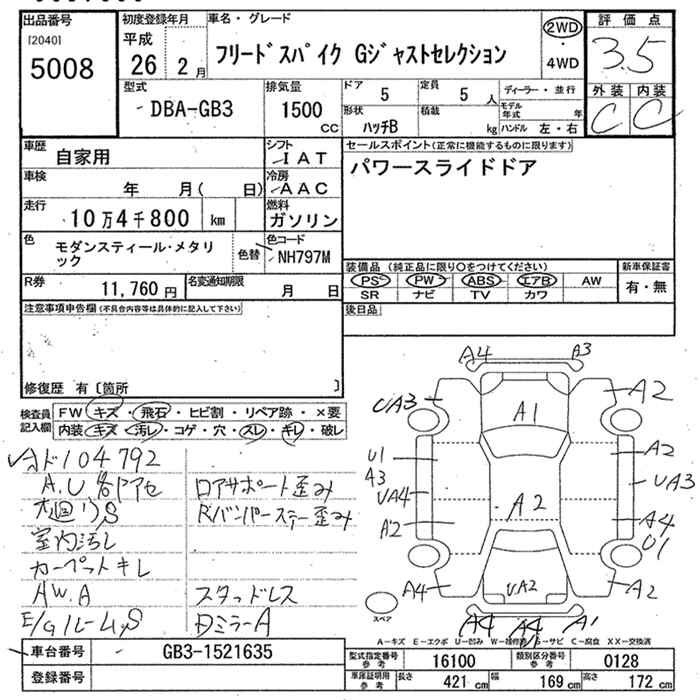 出品番号
[2040]
5008
初度登録年月
平成
26
2月
車名・グレード
フリードスパイク Gジャストセレクション
2WD
・
4WD
評価点
3.5
外装
内装
C
C
型式
DBA-GB3
排気量
1500
cc
ドア
5
定員
5
人
形状
ハッチB
積載
kg
ディーラー・並行
モデル年式
年
ハンドル 左・右
車歴
自家用
シフト
IAT
車検
年 月( 日)
冷房
AAC
走行
10万4千800
km
燃料
ガソリン
色
モダンスティール・メタリック
色替
色コード
NH797M
R券
11,760円
名変通知期限
月 日
セールスポイント(正常に機能するものに限ります)
パワースライドドア
装備品(純正品に限り○をつけてください)
PS
PW
ABS
エアB
AW
SR
ナビ
TV
カワ
新車保証書
有・無
後日品
注意事項申告欄(不具合内容等は具体的に記入して下さい)
修復歴 有〔箇所 〕
検査員
記入欄
FW キズ・飛石・ヒビ割・リペア跡・×要
内装 キズ・汚レ・コゲ・穴・スレ・キレ・破レ
104792
A.U各ドアセ
ロアサポート歪み
S
Rバンパーステー歪み
室内汚レ
カーペットキレ
AW.A
スタッドレス
E/GルームS
ミラーA
A4
A3
UA3
A1
A2
U1
A3
UA4
A2
A2
A2
UA3
A4
U1
A4
UA2
A2
A4
A4
A1
スペア
A－キズ E－エクボ U－凹み W－補修跡 S－サビ C－腐食 XX－交換済
車台番号
GB3-1521635
登録番号
型式指定番号
参考
16100
類別区分番号
参考
0128
車庫証明用
参考
長さ
421 cm
幅
169 cm
高さ
172 cm